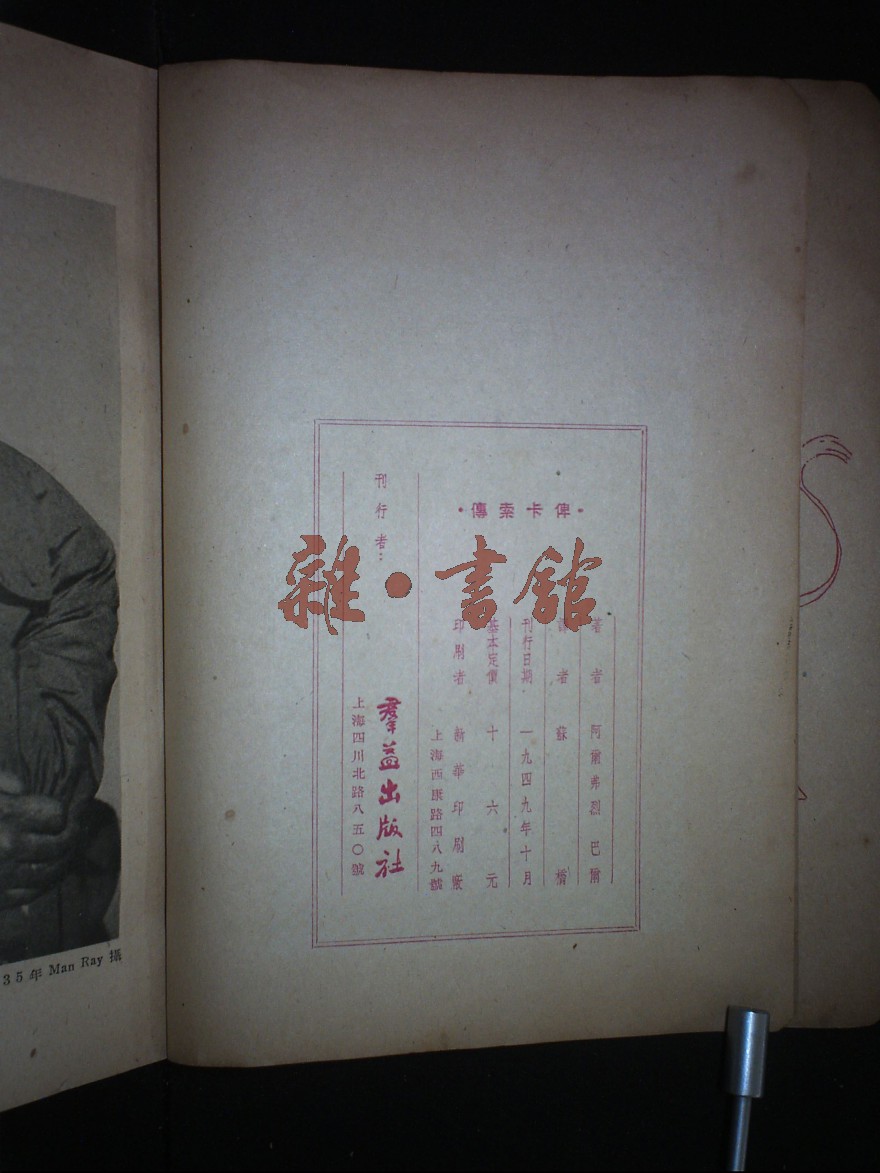 ·俾卡索傳·
著者 阿爾弗烈 巴爾
譯者 蘇橋
刊行日期 一九四九年十月
基本定價 十六元
印刷者 新華印刷廠
上海西康路四八九號
刊行者：
羣益出版社
上海四川北路八五〇號
雜·書館
35年 Man Ray 攝